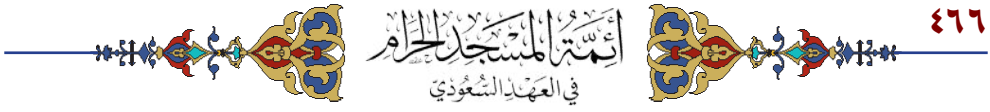 ٤٦٦
أَئِمَّةُ المَسْجِدِ الحَرَامِ
في العَهْدِ السُّعُودِيّ